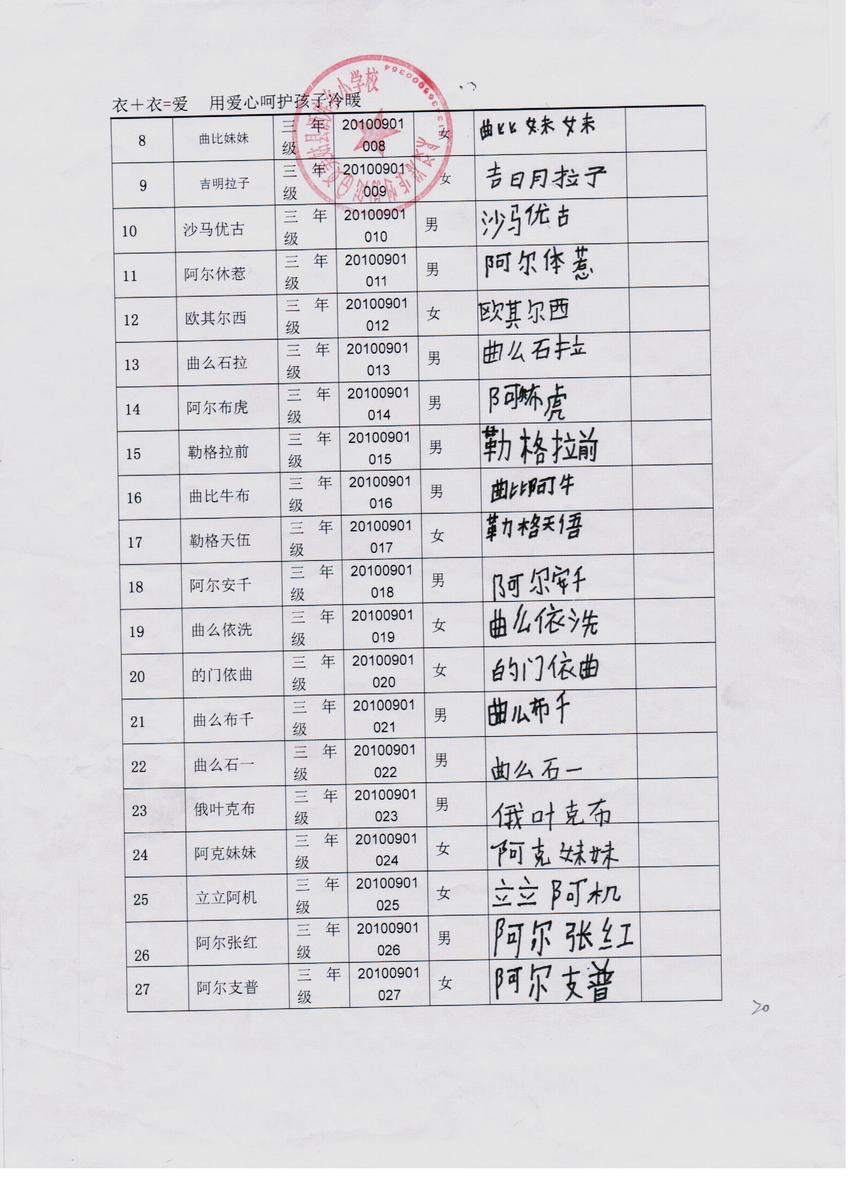 衣＋衣=爱 用爱心呵护孩子冷暖
8 曲比妹妹 三年级 20100901008 女 曲比妹妹
9 吉明拉子 三年级 20100901009 女 吉日月拉子
10 沙马优古 三年级 20100901010 男 沙马优古
11 阿尔休惹 三年级 20100901011 男 阿尔体惹
12 欧其尔西 三年级 20100901012 女 欧其尔西
13 曲么石拉 三年级 20100901013 男 曲么石拉
14 阿尔布虎 三年级 20100901014 男 阿尔布虎
15 勒格拉前 三年级 20100901015 男 勒格拉前
16 曲比牛布 三年级 20100901016 男 曲比阿牛
17 勒格天伍 三年级 20100901017 女 勒格天俉
18 阿尔安千 三年级 20100901018 男 阿尔安千
19 曲么依洗 三年级 20100901019 女 曲么依洗
20 的门依曲 三年级 20100901020 女 的门依曲
21 曲么布千 三年级 20100901021 男 曲么布千
22 曲么石一 三年级 20100901022 男 曲么石一
23 俄叶克布 三年级 20100901023 男 俄叶克布
24 阿克妹妹 三年级 20100901024 女 阿克妹妹
25 立立阿机 三年级 20100901025 女 立立阿机
26 阿尔张红 三年级 20100901026 男 阿尔张红
27 阿尔支普 三年级 20100901027 女 阿尔支普
20